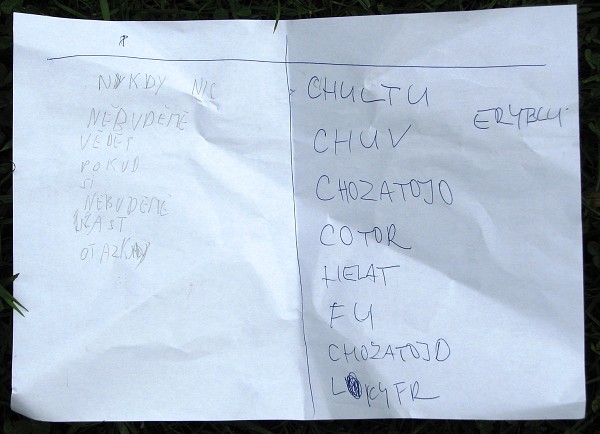 NIKDY NIC
NEBUDEME
VĚDĚT
POKUD
SI
NEBUDEME
KLÁST
OTÁZKY
CHULTU
ERYBLU
CHUV
CHOZATOJO
COTOR
HELAT
FU
CHOZATOJD
LOKYFR